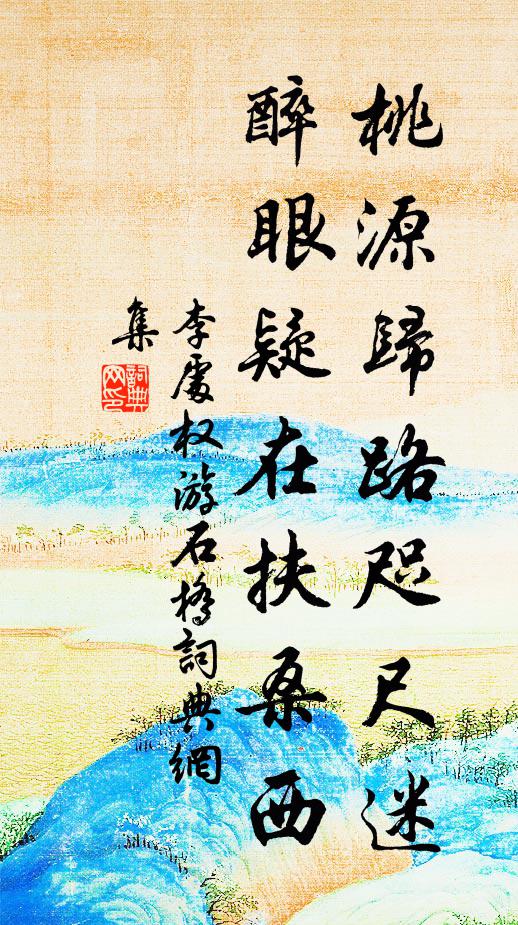 桃源歸路咫尺迷
醉眼疑在扶桑西
李處权游石橋詞典網
集
詞典
网印